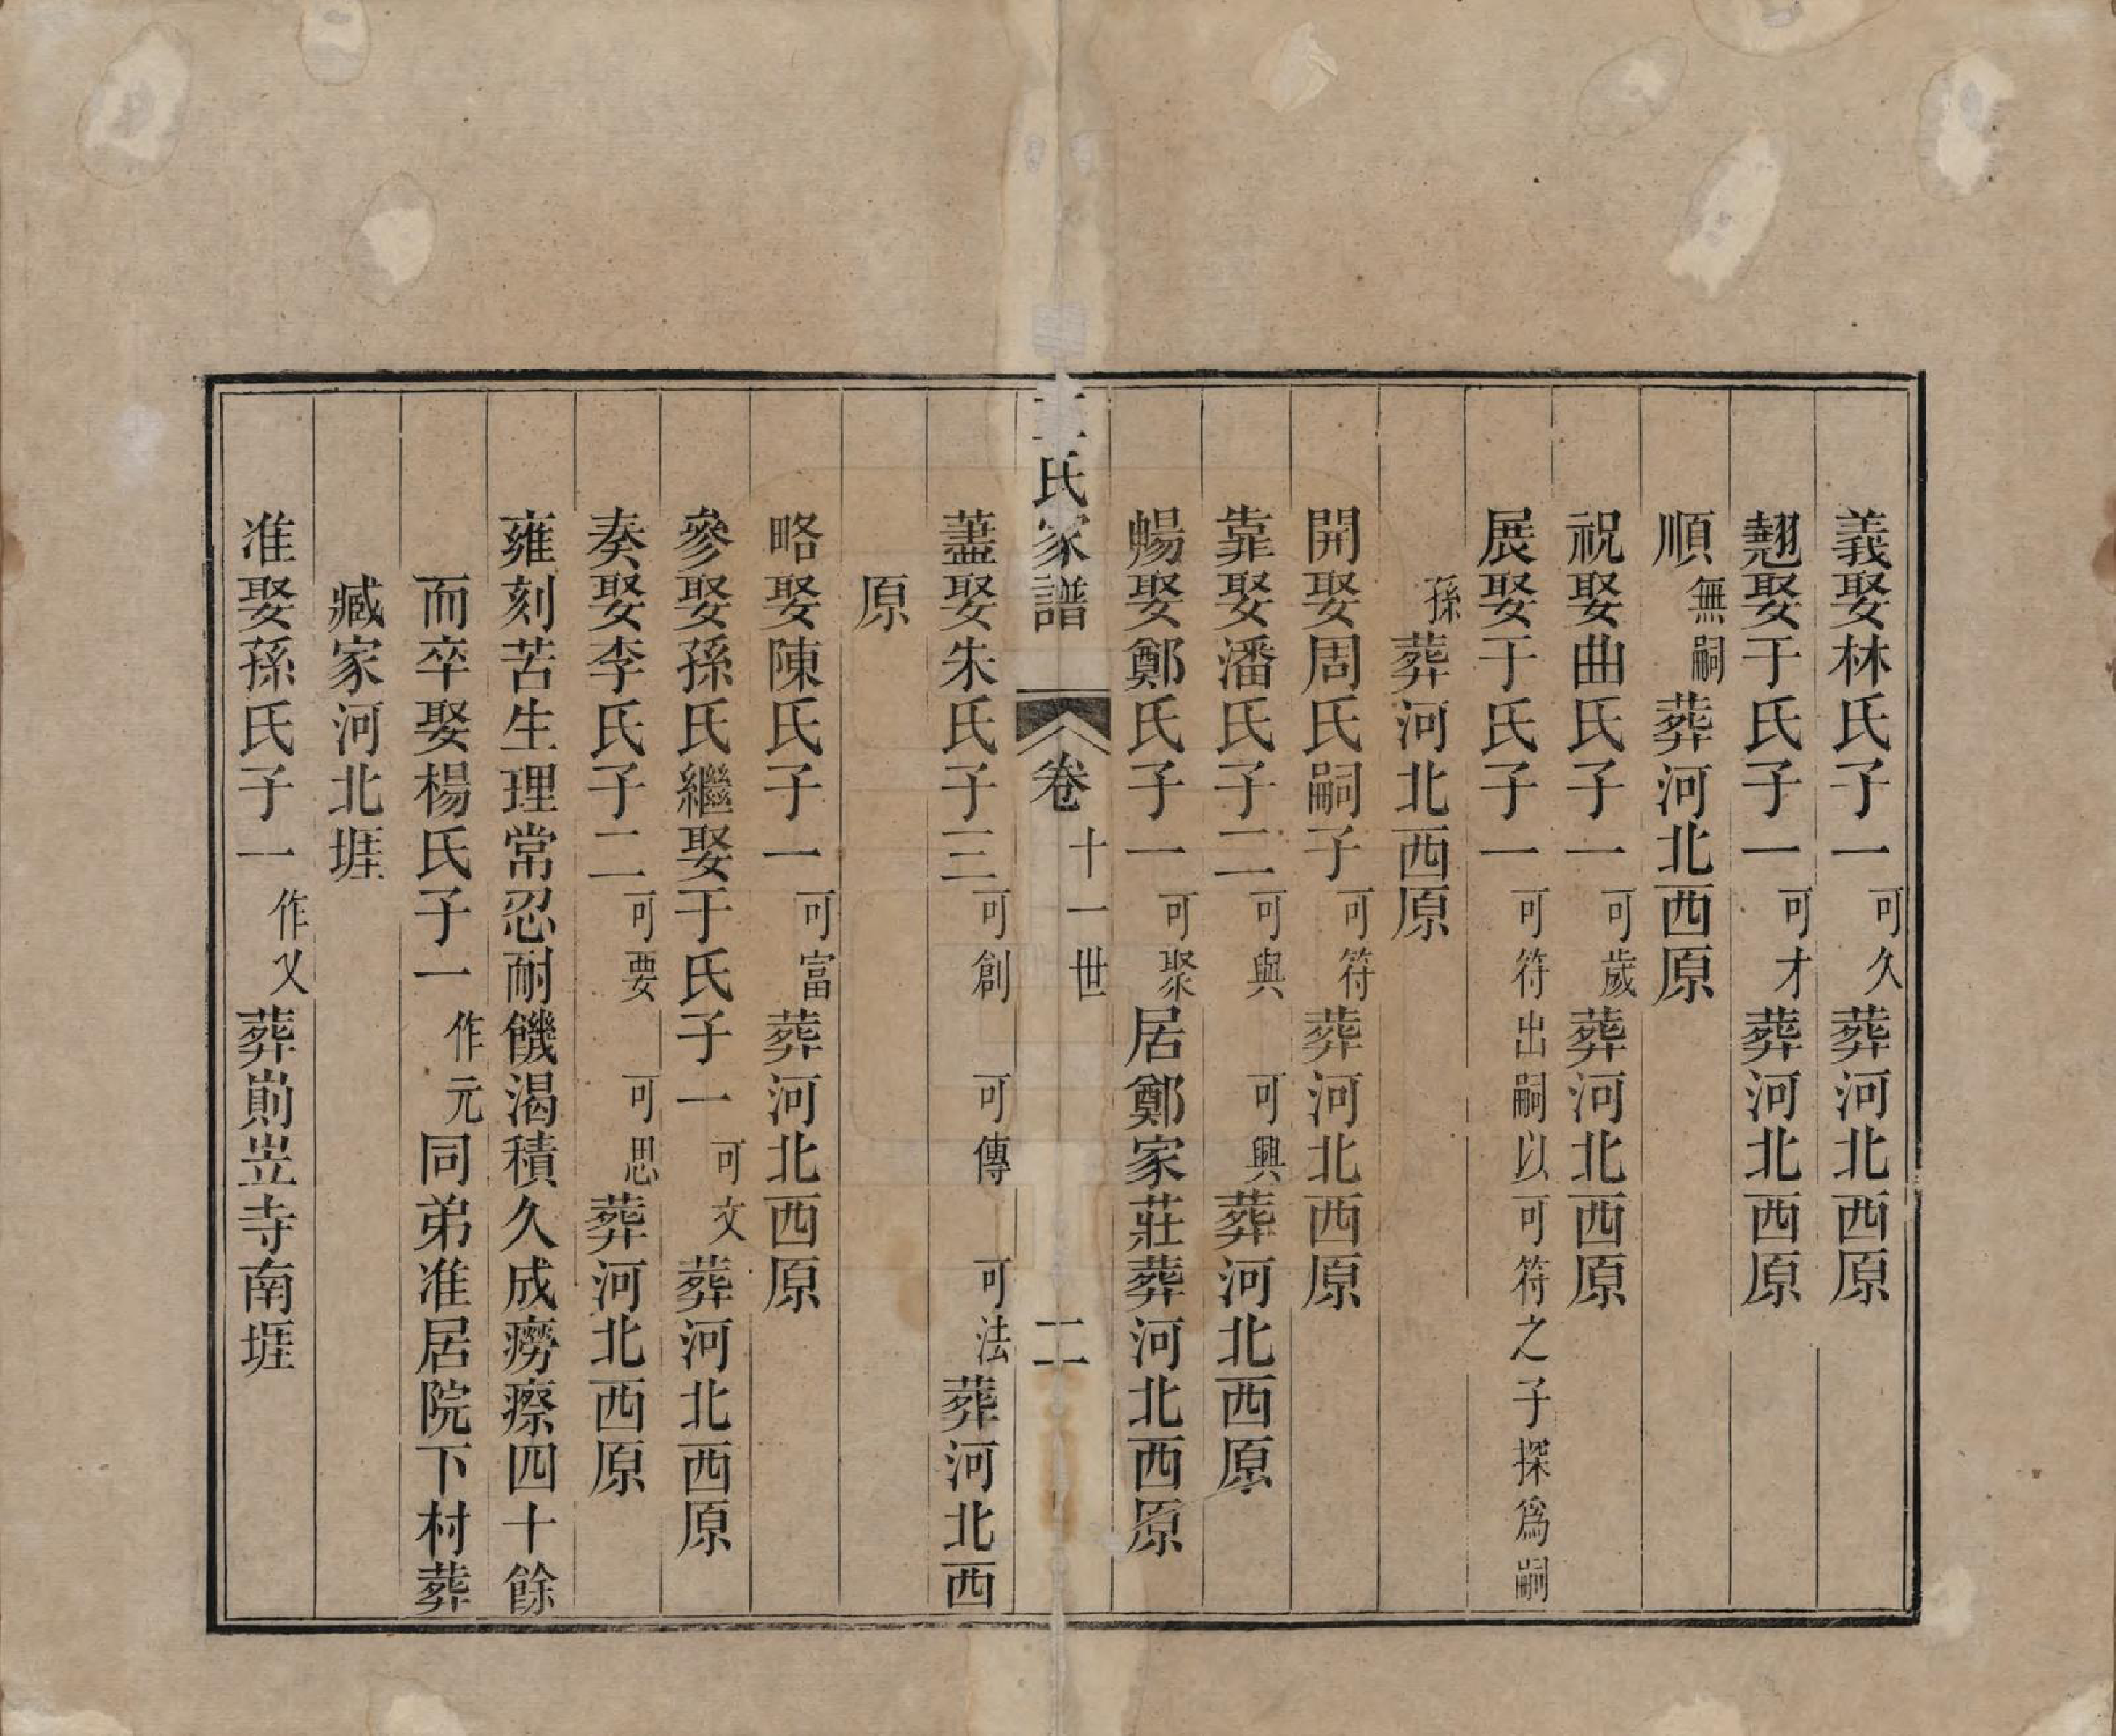 義娶林氏子一可久葬河北西原
翹娶于氏子一可才葬河北西原
順無嗣葬河北西原
祝娶曲氏子一可歲葬河北西原
展娶于氏子一可符出嗣以可符之子探爲嗣
孫葬河北西原
開娶周氏嗣子可符葬河北西原
靠娶潘氏子二可與可興葬河北西原
暢娶鄭氏子一可聚居鄭家莊葬河北西原
氏家譜 卷 十一世 二
蓋娶朱氏子三可創可傳可法葬河北西
原
略娶陳氏子一可富葬河北西原
參娶孫氏繼娶于氏子一可文葬河北西原
奏娶李氏子二可要可思葬河北西原
雍刻苦生理常忍耐饑渴積久成癆瘵四十餘
而卒娶楊氏子一作元同弟准居院下村葬
臧家河北堐
准娶孫氏子一作乂葬前岦寺南堐